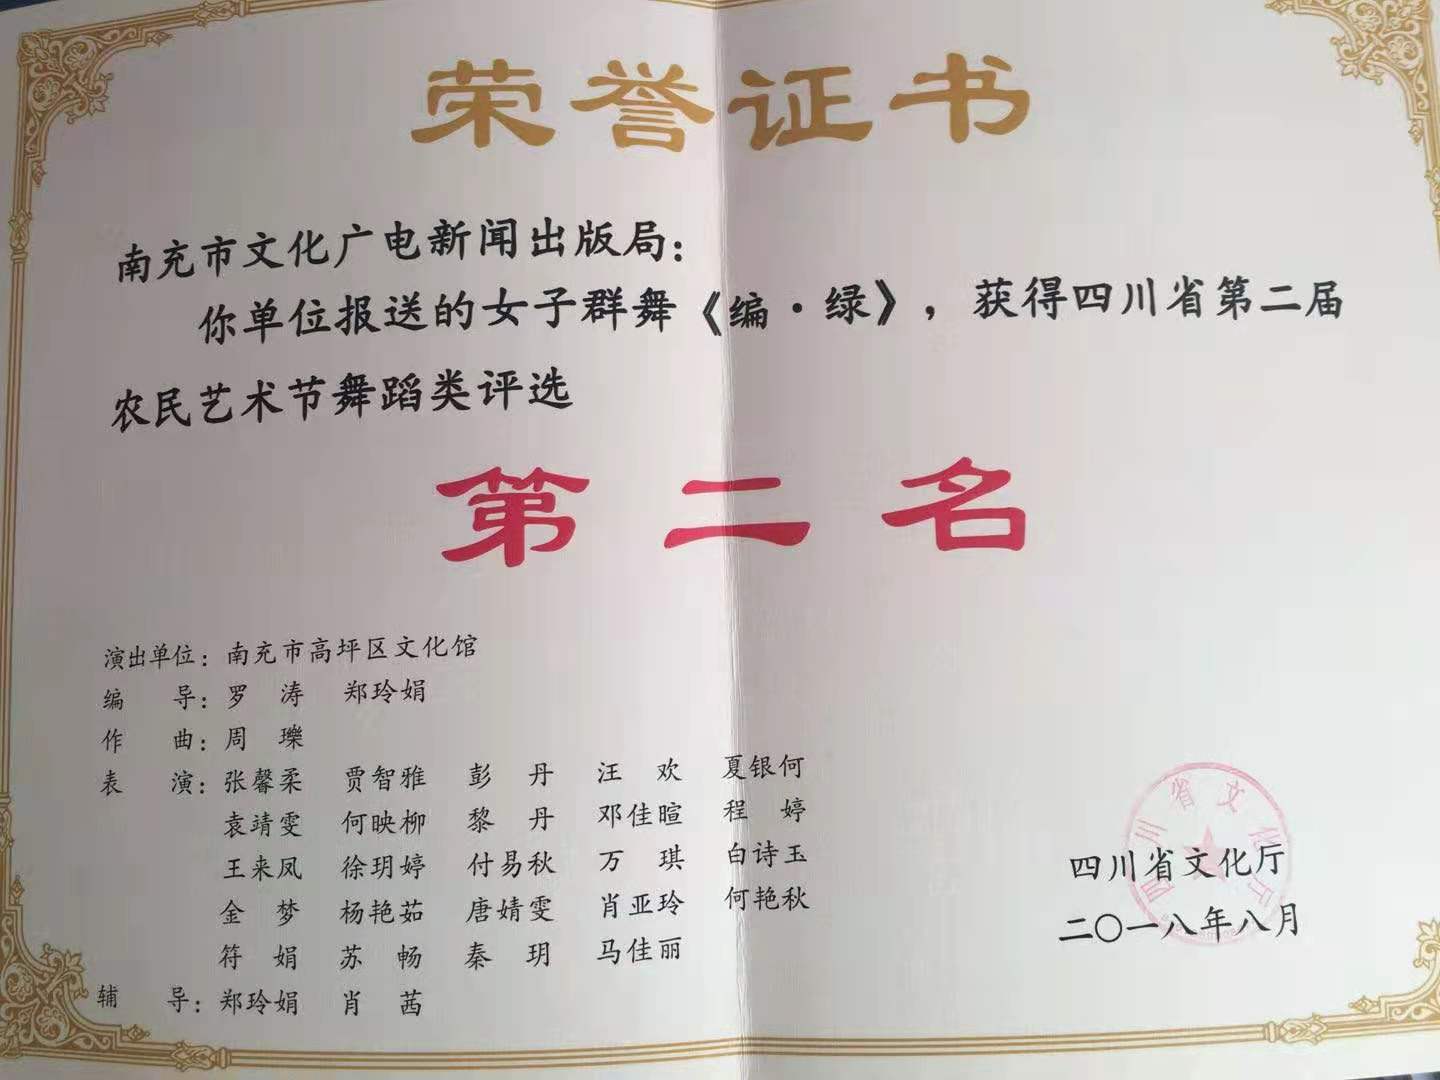 荣誉证书
南充市文化广电新闻出版局：
你单位报送的女子群舞《编·绿》，获得四川省第二届
农民艺术节舞蹈类评选
第二名
演出单位：南充市高坪区文化馆
编 导：罗 涛 郑玲娟
作 曲：周 瓅
表 演：张馨柔 贾智雅 彭 丹 汪 欢 夏银何
袁靖雯 何映柳 黎 丹 邓佳暄 程 婷
王来凤 徐玥婷 付易秋 万 琪 白诗玉
金 梦 杨艳茹 唐婧雯 肖亚玲 何艳秋
符 娟 苏 畅 秦 玥 马佳丽
辅 导：郑玲娟 肖 茜
四川省文化厅
四川省文化厅
二〇一八年八月